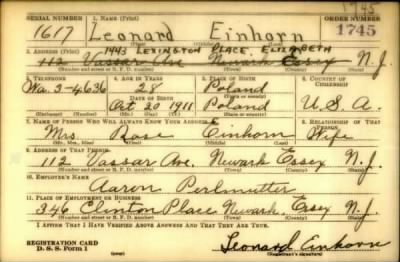 1745
SERIAL NUMBER 1. NAME (Print) ORDER NUMBER
1617 Leonard Einhorn 1745
(First) (Middle) (Last)
1443 LEXINGTON PLACE, ELIZABETH
2. ADDRESS (Print)
112 Vassar Ave Newark Essex N.J.
(Number and street or R. F. D. number) (Town) (County) (State)
3. TELEPHONE 4. AGE IN YEARS 5. PLACE OF BIRTH 6. COUNTRY OF CITIZENSHIP
Wa. 3-4636 28 Poland
DATE OF BIRTH
Oct 20 1911 Poland U.S.A.
(Mo.) (Day) (Yr.)
7. NAME OF PERSON WHO WILL ALWAYS KNOW YOUR ADDRESS 8. RELATIONSHIP OF THAT PERSON
Mrs. Rose Einhorn Wife
(Mr., Mrs., Miss) (First) (Middle) (Last)
9. ADDRESS OF THAT PERSON
112 Vassar Ave. Newark Essex N.J.
(Number and street or R. F. D. number) (Town) (County) (State)
10. EMPLOYER'S NAME
Aaron Perlmutter
11. PLACE OF EMPLOYMENT OR BUSINESS
346 Clinton Place Newark Essex N.J.
(Number and street or R. F. D. number) (Town) (County) (State)
I AFFIRM THAT I HAVE VERIFIED ABOVE ANSWERS AND THAT THEY ARE TRUE.
REGISTRATION CARD
D. S. S. Form 1
Leonard Einhorn
(Registrant's signature)